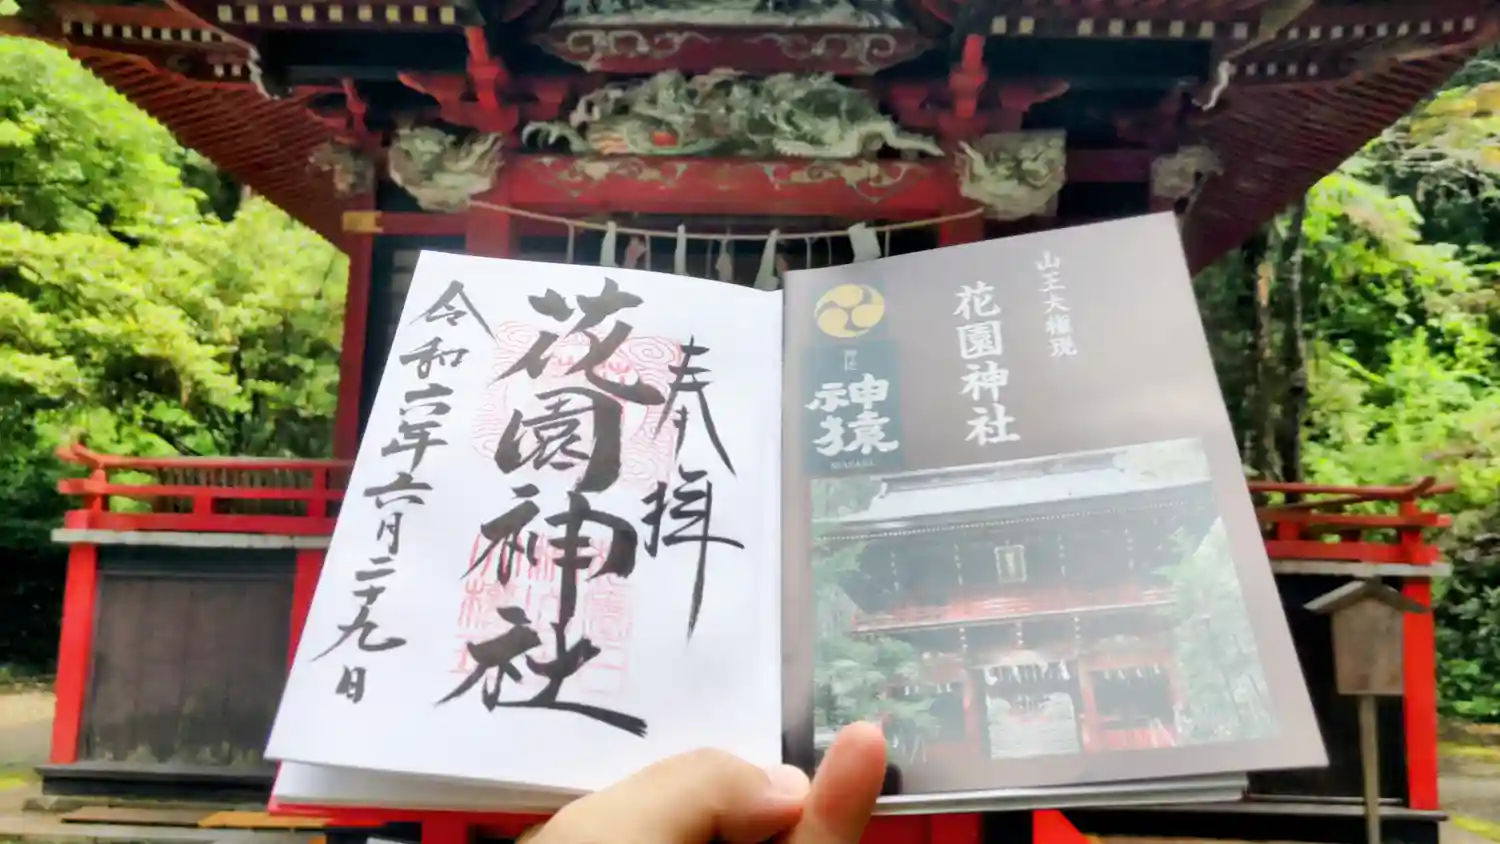 奉拝
花園神社
令和六年六月二十九日
山王大権現
花園神社
神猿